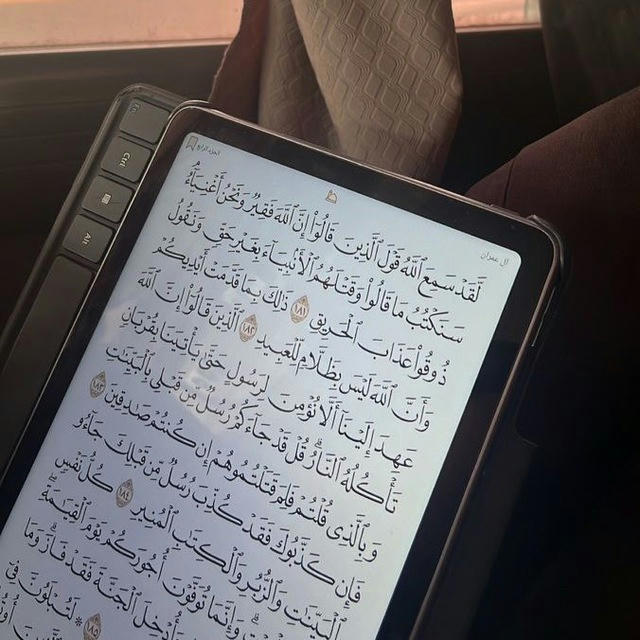 الجزء الرابع
آل عمران
لَّقَدْ سَمِعَ ٱللَّهُ قَوْلَ ٱلَّذِينَ قَالُوٓا۟ إِنَّ ٱللَّهَ فَقِيرٌ وَنَحْنُ أَغْنِيَآءُ
سَنَكْتُبُ مَا قَالُوا۟ وَقَتْلَهُمُ ٱلْأَنۢبِيَآءَ بِغَيْرِ حَقٍّ وَنَقُولُ
ذُوقُوا۟ عَذَابَ ٱلْحَرِيقِ ١٨١ ذَٰلِكَ بِمَا قَدَّمَتْ أَيْدِيكُمْ
وَأَنَّ ٱللَّهَ لَيْسَ بِظَلَّامٍ لِّلْعَبِيدِ ١٨٢ ٱلَّذِينَ قَالُوٓا۟ إِنَّ ٱللَّهَ
عَهِدَ إِلَيْنَآ أَلَّا نُؤْمِنَ لِرَسُولٍ حَتَّىٰ يَأْتِيَنَا بِقُرْبَانٍ
تَأْكُلُهُ ٱلنَّارُ ۗ قُلْ قَدْ جَآءَكُمْ رُسُلٌ مِّن قَبْلِى بِٱلْبَيِّنَٰتِ
وَبِٱلَّذِى قُلْتُمْ فَلِمَ قَتَلْتُمُوهُمْ إِن كُنتُمْ صَٰدِقِينَ ١٨٣
فَإِن كَذَّبُوكَ فَقَدْ كُذِّبَ رُسُلٌ مِّن قَبْلِكَ جَآءُو
بِٱلْبَيِّنَٰتِ وَٱلزُّبُرِ وَٱلْكِتَٰبِ ٱلْمُنِيرِ ١٨٤ كُلُّ نَفْسٍ
وَإِنَّمَا تُوَفَّوْنَ أُجُورَكُمْ يَوْمَ ٱلْقِيَٰمَةِ ۖ
وَأُدْخِلَ ٱلْجَنَّةَ فَقَدْ فَازَ ۗ وَمَا
١٨٥ ۞ لَتُبْلَوُنَّ فِىٓ
Ctrl
Alt